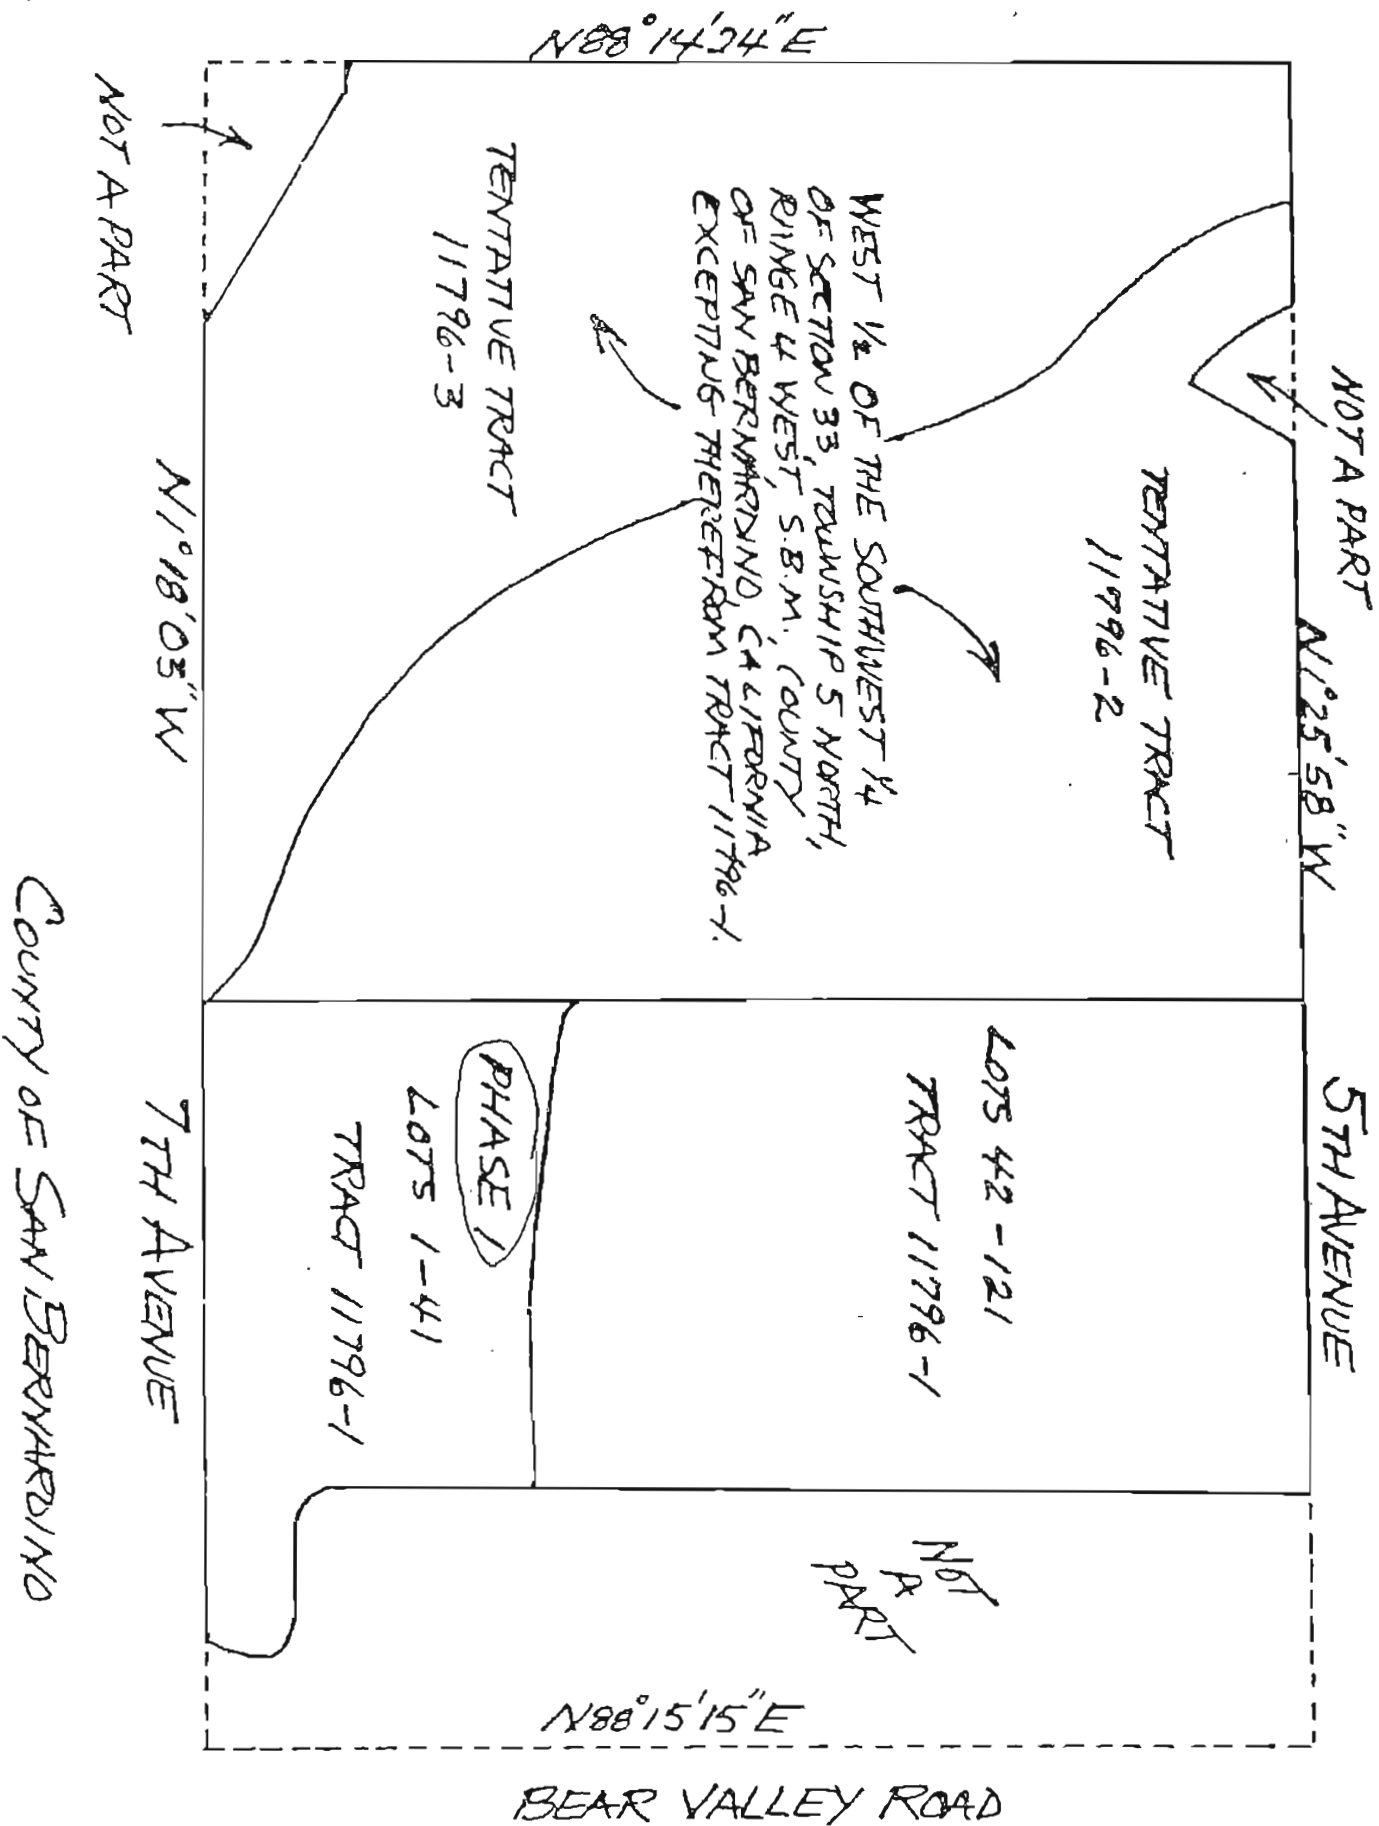 N88°14'34"E
NOT A PART
NOT A PART
TENTATIVE TRACT
11796-3
WEST 1/2 OF THE SOUTHWEST 1/4
OF SECTION 33, TOWNSHIP 5 NORTH,
RANGE 4 WEST, S.B.M., COUNTY
OF SAN BERNARDINO, CALIFORNIA
EXCEPTING THEREFROM TRACT 11796-1.
TENTATIVE TRACT
11796-2
N1°25'58"W
N1°18'03"W
5TH AVENUE
LOTS 42-121
TRACT 11796-1
PHASE 1
LOTS 1-41
TRACT 11796-1
7TH AVENUE
COUNTY OF SAN BERNARDINO
NOT
A
PART
N88°15'15"E
BEAR VALLEY ROAD